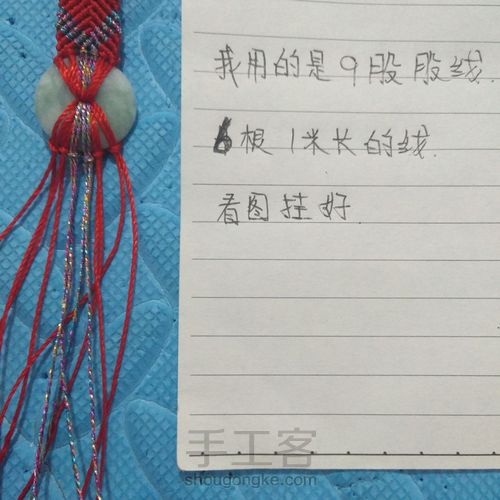 我用的是9股股线.
6根1米长的线.
看图挂好
手工客
shougongke.com